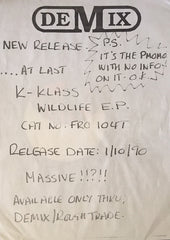 DEMIX
NEW RELEASE:-
PS.
IT'S THE PROMO
WITH NO INFO
ON IT. O.K.
....AT LAST
K-KLASS
WILDLIFE E.P.
CAT NO: FRO 104T
RELEASE DATE: 1/10/90
MASSIVE!!?!!
AVAILABLE ONLY THRU,
DEMIX/ROUGH TRADE.